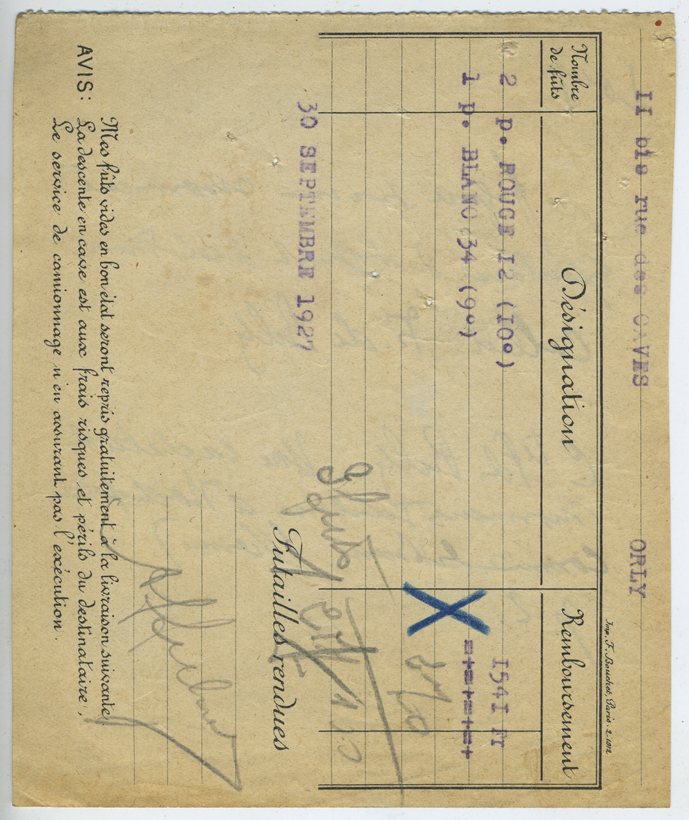 II bis rue des CAVES ORLY
Imp. F. Bouchet, Paris
Nombre de fûts
Désignation
Remboursement
2 p. ROUGE I2 (IO°) I54I Fr
1 p. BLANC 34 (9°) =+=+=+=+
X
30 SEPTEMBRE 1927
Futailles rendues
AVIS: Mes fûts vides en bon état seront repris gratuitement à la livraison suivante
La descente en cave est aux frais risques et périls du destinataire;
Le service de camionnage n'en assurant pas l'exécution.